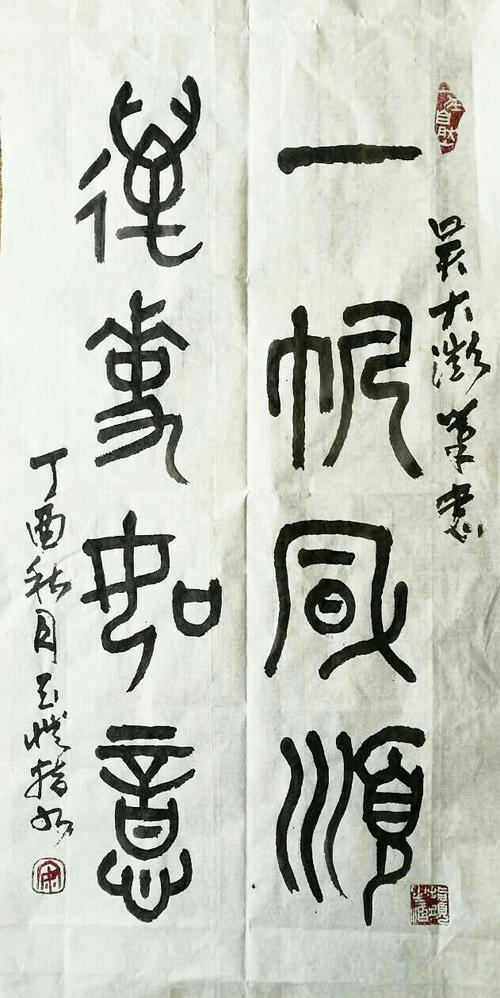 吴大澂筆意
一帆風順
萬事如意
丁酉秋月